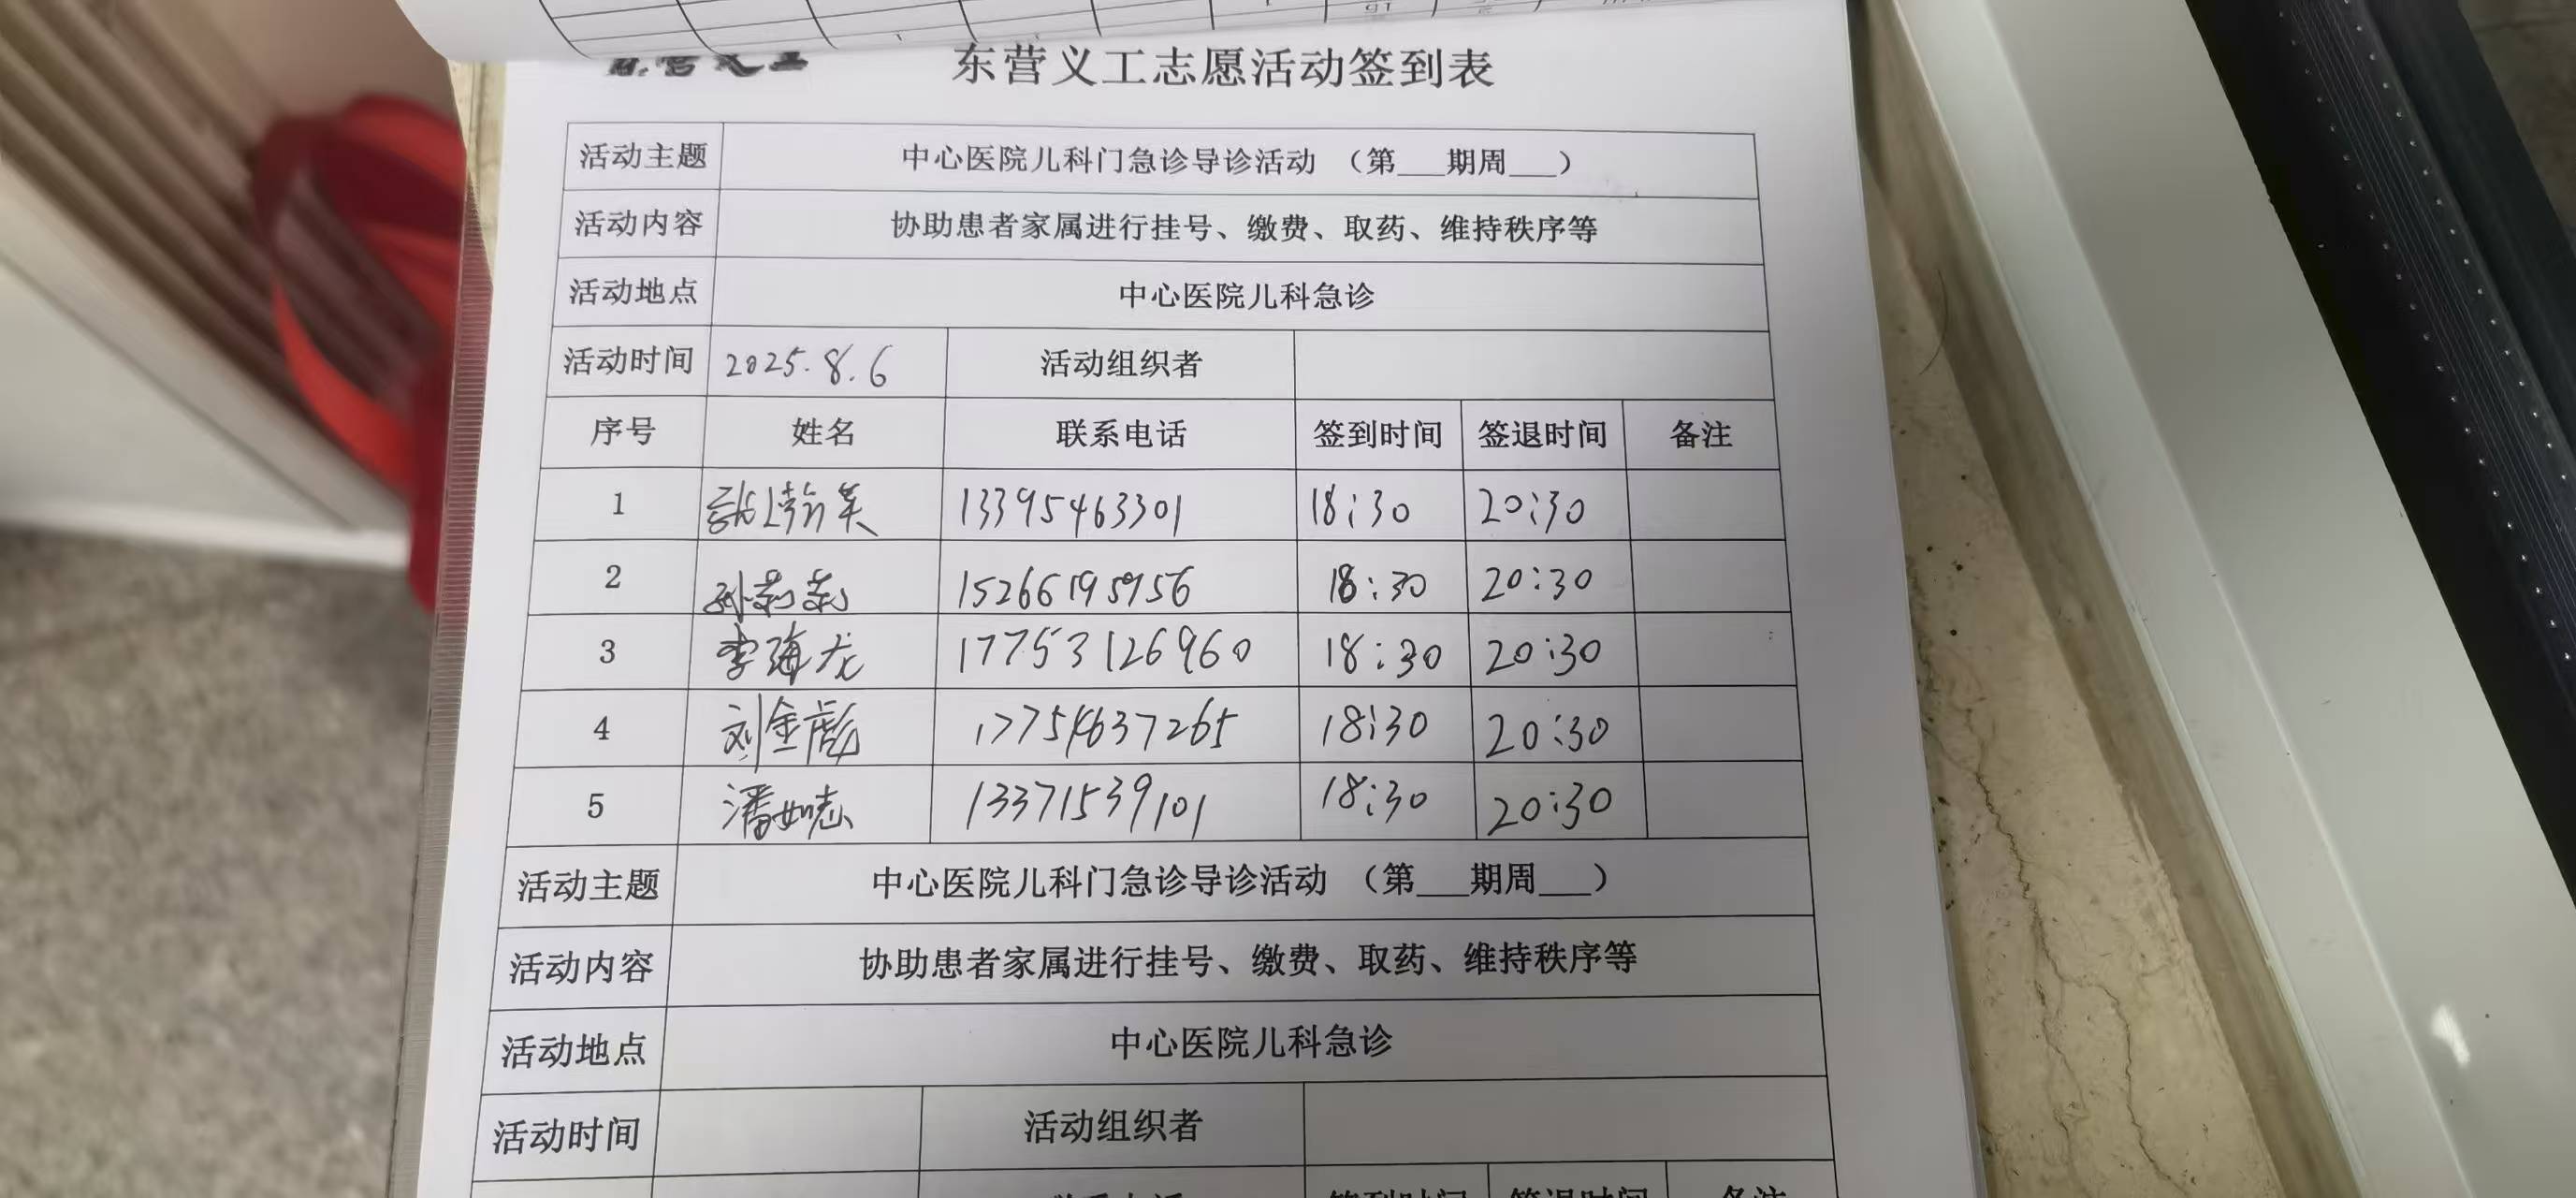 东营义工
东营义工志愿活动签到表
活动主题 中心医院儿科门急诊导诊活动 （第___期周___）
活动内容 协助患者家属进行挂号、缴费、取药、维持秩序等
活动地点 中心医院儿科急诊
活动时间 2025.8.6 活动组织者
序号 姓名 联系电话 签到时间 签退时间 备注
1 13395463301 18:30 20:30
2 孙莉莉 15266195956 18:30 20:30
3 李海龙 17753126960 18:30 20:30
4 刘金彪 17754637265 18:30 20:30
5 潘如志 13371539101 18:30 20:30
活动主题 中心医院儿科门急诊导诊活动 （第___期周___）
活动内容 协助患者家属进行挂号、缴费、取药、维持秩序等
活动地点 中心医院儿科急诊
活动时间 活动组织者
联系电话 签到时间 签退时间 备注